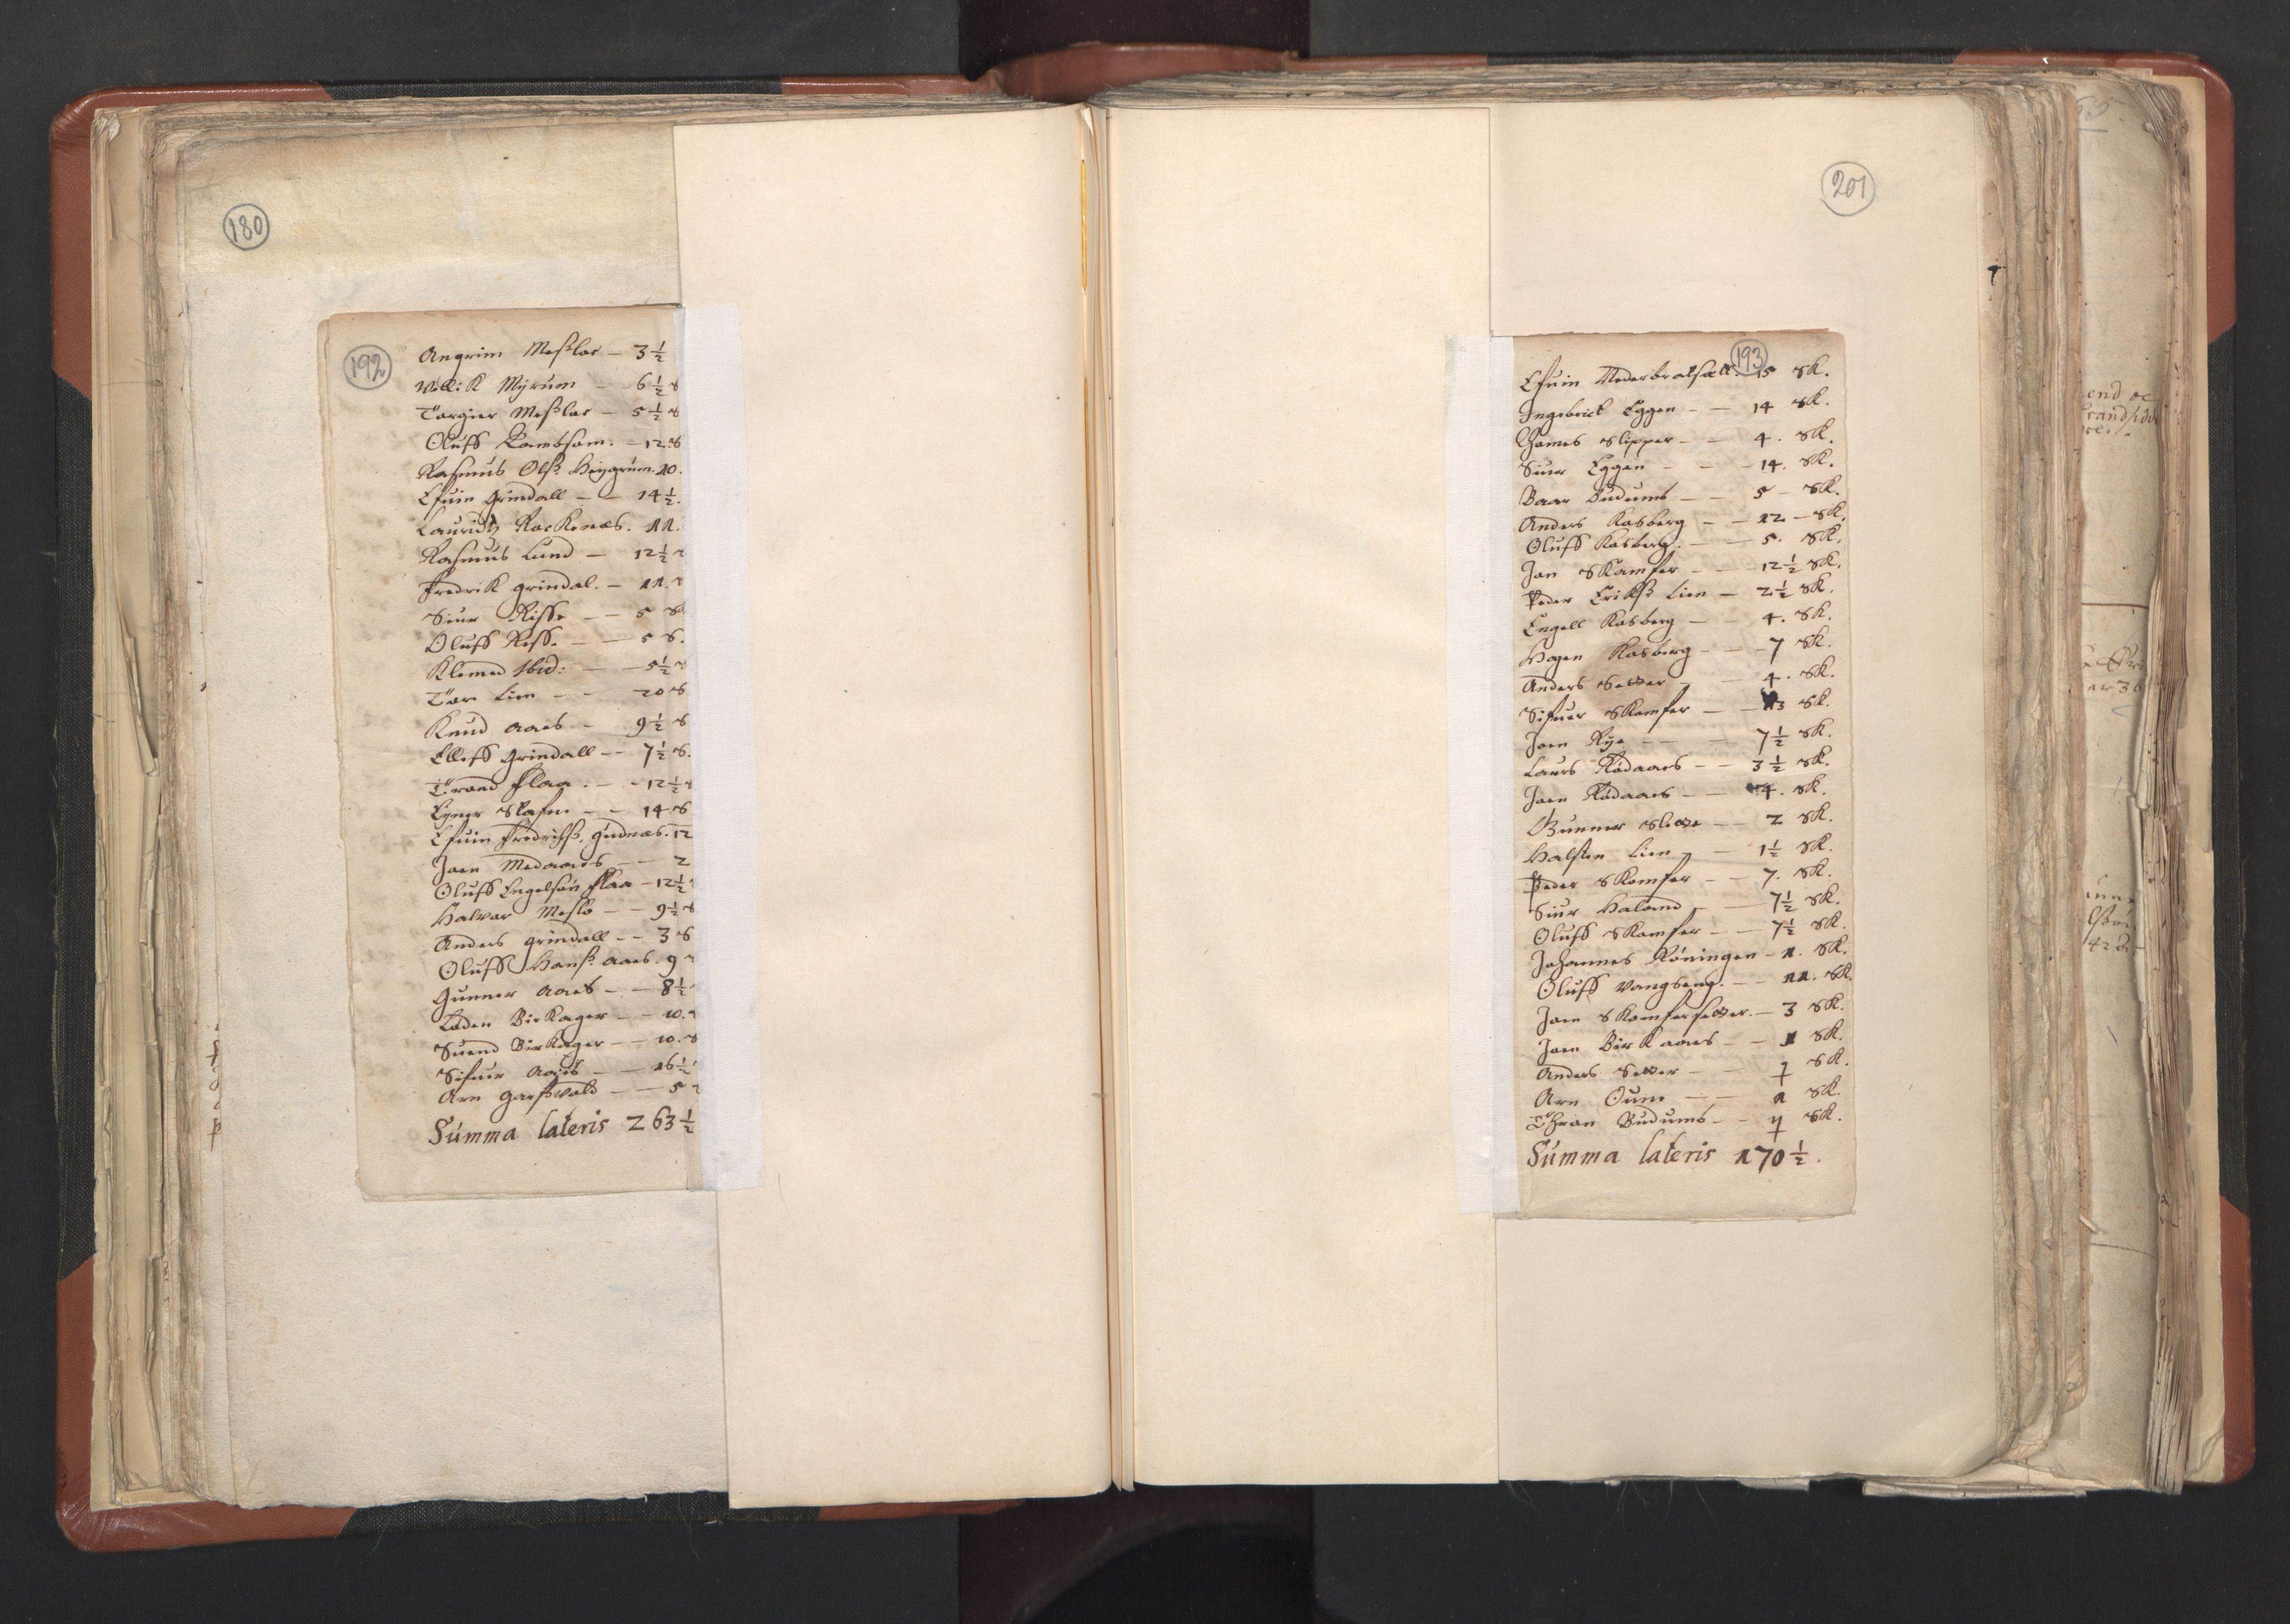 180
192
Angrim Meslos – 3½
Well: K Myrum – 6½ s
Torgier Meslos – 5½ s
Oluff Kambsam. – 12 s
Rasmus Olss: Heygrum. 10.
Efuin Grindall – – 14½.
Lauridtz Rockenæs. 11.
Rasmus Lund – 12½
Fredrik Grindal. – 11.
Siur Risse – – 5 sk
Oluff Riss. – – 5 s.
Klemed Ibid: – 5½
Tor Lien – – 20 s
Knud Aaes – 9½ s
Elleff Grindall – – 7½ s.
Trond Flaa. – – 12½
Eyner Skafm – – 14 s
Efuin Fredrichs. Gudnæs. 12
Joen Medaaes – – 2
Oluff Engelsøn Flaa – 12½
Halvor Meslo – – 9½ s
Anders Grindall – – 3 s
Oluff Hanss: Aaes. 9
Gunner Aaes – – 8½
Loden Birkager – – 10.
Suend Birkager – – 10. s
Sifuer Aaes – – 16½
Arn Garsvold – – 5
Summa lateris 263½
201
193
Efuin Nederbratsætt. 15 sk.
Ingebrict Eggen – – 14 sk.
Thomes Slipper – – 4. sk.
Siur Eggen – – 14. sk.
Baar Budums – – 5 – sk.
Anders Kosberg – – 12 – sk.
Oluff Kosberg. – – 5. sk.
Jon Skamfer – – 12½ sk.
Peder Erickss Lien – 2½ sk.
Engell Kosberg – – 4. sk.
Hogen Kosberg – – 7 sk.
Anders Setter – – 4. sk.
Sifuer Skomfer – – 13 sk.
Joen Rye – – 7½ sk.
Laurs Rødaaes – – 3½ sk.
Joen Rødaaes – – 4. sk.
Gunner Slette – – 2 sk.
Halsten Lien – – 1½ sk.
Peder Skomfer – – 7. sk.
Siur Haland – – 7½ sk.
Oluff Skomfer – – 7½ sk.
Johannes Røningen – 1. sk.
Oluff Vangseng. – – 11. sk.
Joen Skomfersetter. – 3 sk.
Joen Birkaaes – – 1 sk.
Anders Setter – – 7 sk.
Arn Oune – – 1 sk.
Thron Budums – – 4 sk.
Summa lateris 170½.